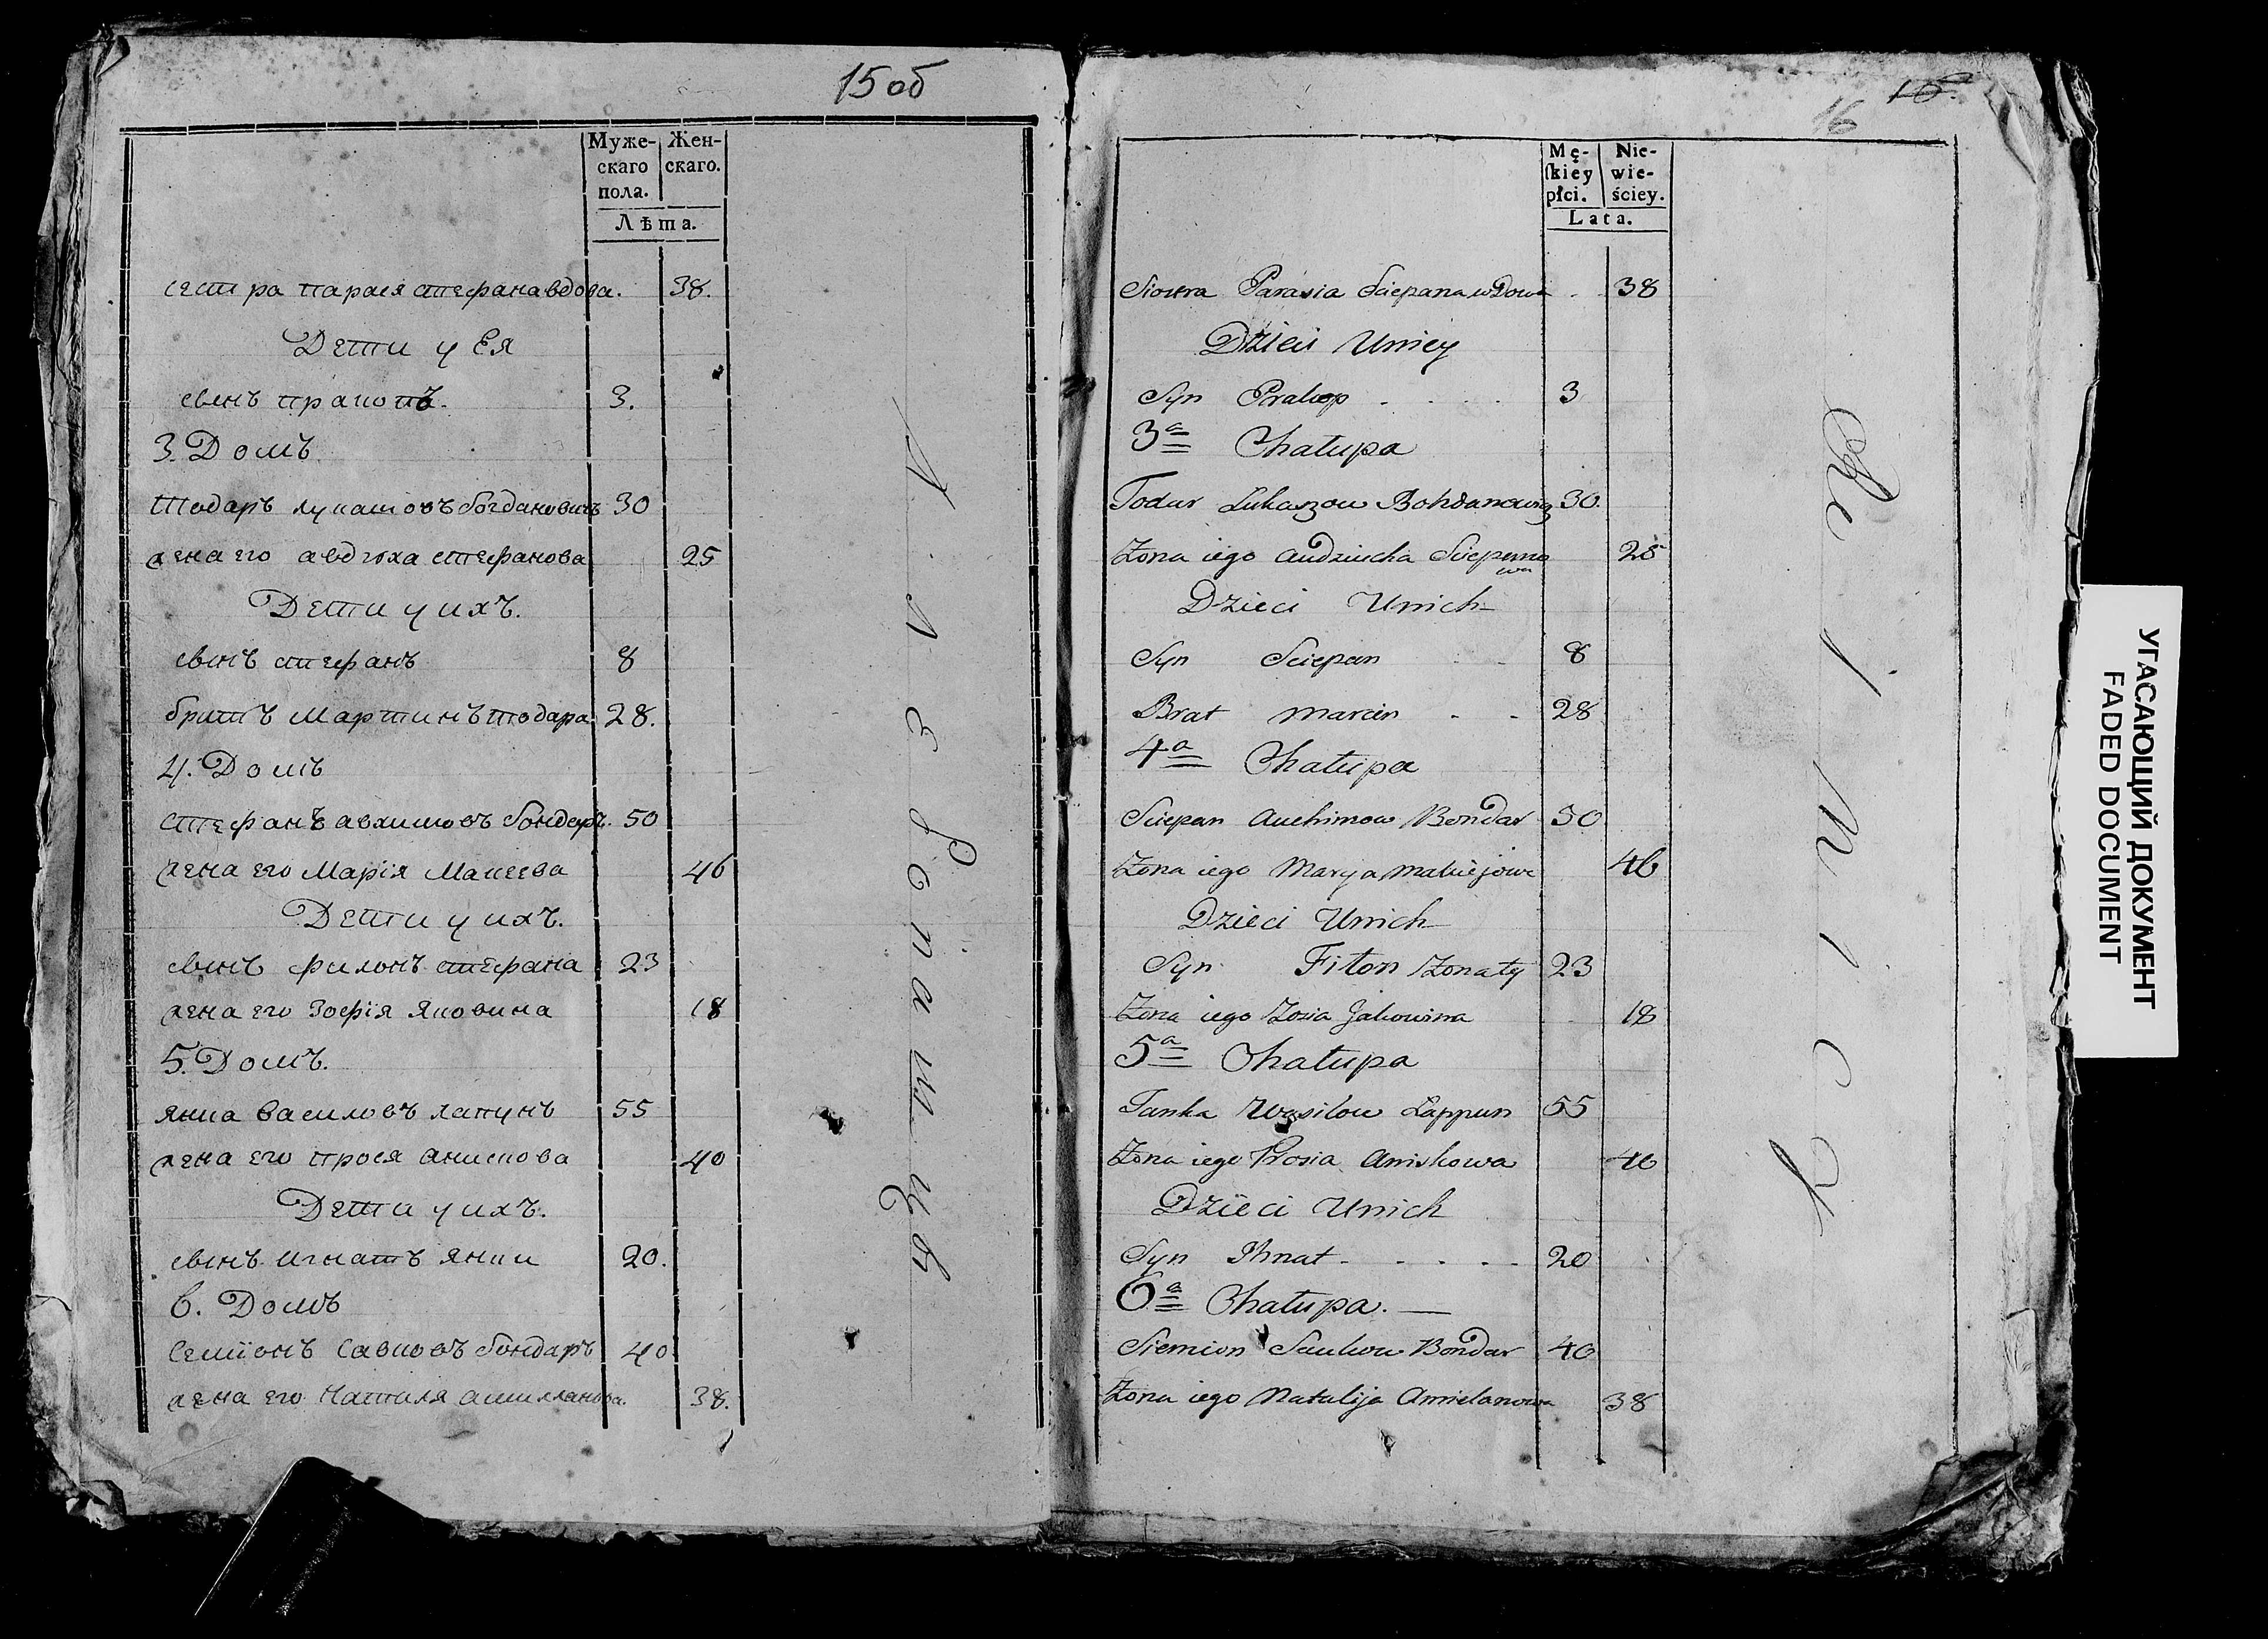 15 об
Муже-
скаго
пола.
Жен-
скаго.
Лѣта.
сестра парася стефана вдова. 38.
Дети у Ея
сынъ пракопъ. 3.
3. Домъ
Тодаръ лукашовъ богдановичъ 30
жена его авдюха стефанова 25
Дети у ихъ.
сынъ стефанъ 8
братъ Мартинъ тодара 28.
4. Домъ
Стефанъ авхимовъ бондарь. 50
жена его Марія Макеева 46
Дети у ихъ.
сынъ филонъ стефана 23
жена его Зофія Яковина 18
5. Домъ.
янка василовъ лапунъ 55
жена его прося анискова 40
Дети у ихъ.
сынъ игнатъ янки 20.
6. Домъ
Семіонъ Савковъ бондаръ 40
жена его Наталя амилянова. 38.
16
16.
Mę-
ſkiey
płci.
Nie-
wie-
ściey.
Lata.
Siostra Parasia Sciepana wdowa 38
Dzieci Uniey
Syn Prakop 3
3a Chałupa
Todar Łukaszow Bohdanowicz 30.
Żona iego Audziucha Sciepano
wa 25
Dzieci Unich
Syn Sciepan 8
Brat Marcin 28
4a Chałupa
Sciepan Auchimow Bondar 50
Żona iego Marya Makiejowa 46
Dzieci Unich
Syn Fiłon Żonaty 23
Żona iego Zosia Jakowina 18
5a Chałupa
Janka Wasilow Łappun 55
Żona iego Prosia Aniskowa 40
Dzieci Unich
Syn Ihnat 20
6a Chałupa.
Siemion Saukow Bondar 40
Żona iego Natalija Amielanowa 38
УГАСАЮЩИЙ ДОКУМЕНТ
FADED DOCUMENT